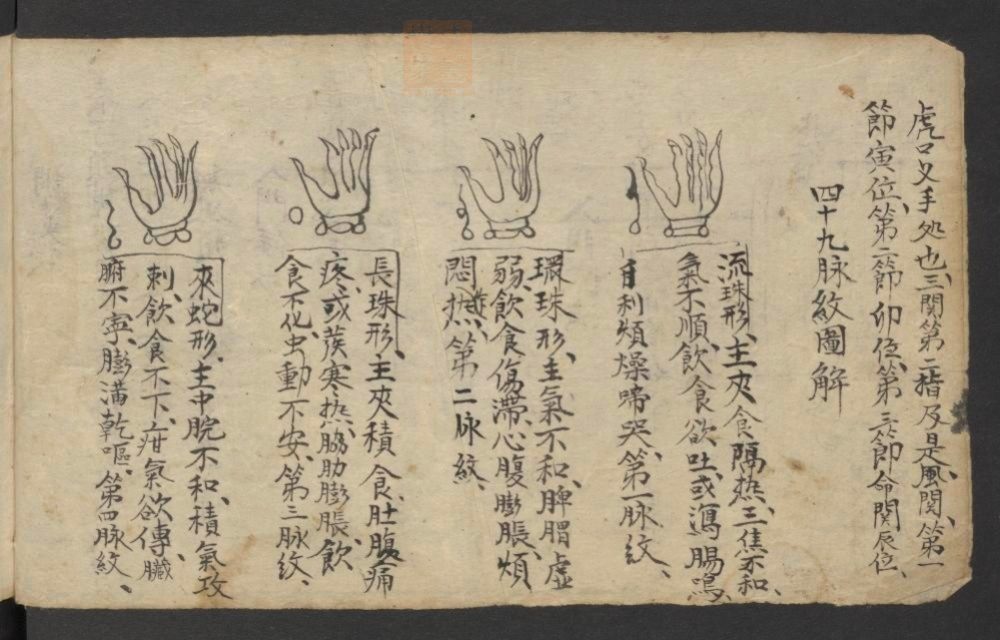 虎口叉手処也、三関第二指及是風関、第一
節寅位、第二節卯位、第三節命関辰位、
四十九脉紋圖解
流珠形、主夾食隔热、三焦不和、
氣不順、飲食欲吐、或瀉腸鳴、
自利煩燥啼哭、第一脉紋、
環珠形、主氣不和、脾胃虛
弱、飲食傷滯、心腹膨脹、煩
悶發热、第二脉紋、
長珠形、主夾積食、肚腹痛
疼、或發寒热、脇肋膨脹、飲
食不化、虫動不安、第三脉紋、
來蛇形、主中脘不和、積氣攻
刺、飲食不下、疳氣欲傳臟
腑不寧、膨滿乾嘔、第四脉紋、